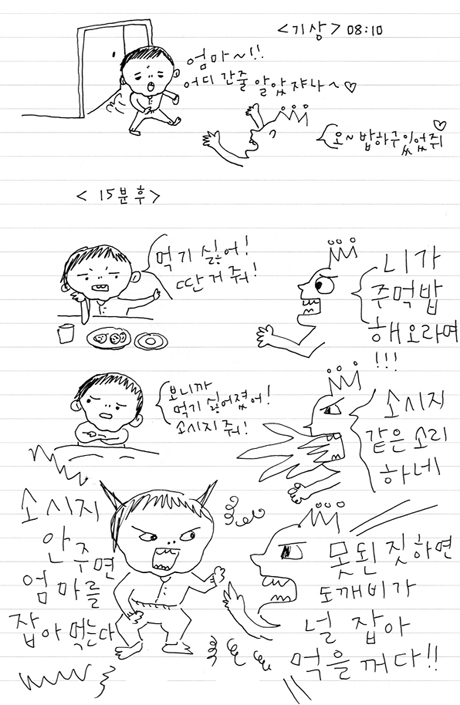 <기상> 08:10
엄마~!!
어디 간줄 알았쟈나~♡
오~ 밥하구 있었줘♡
<15분 후>
먹기 싫어!
딴 거 줘!
니가
주먹밥
해오라며
!!!
보니까
먹기 싫어졌어!
소시지 줘!
소시지
같은 소리
하네
소시지
안 주면
엄마를
잡아 먹는다
못된 짓하면
도깨비가
널 잡아
먹을 꺼다!!